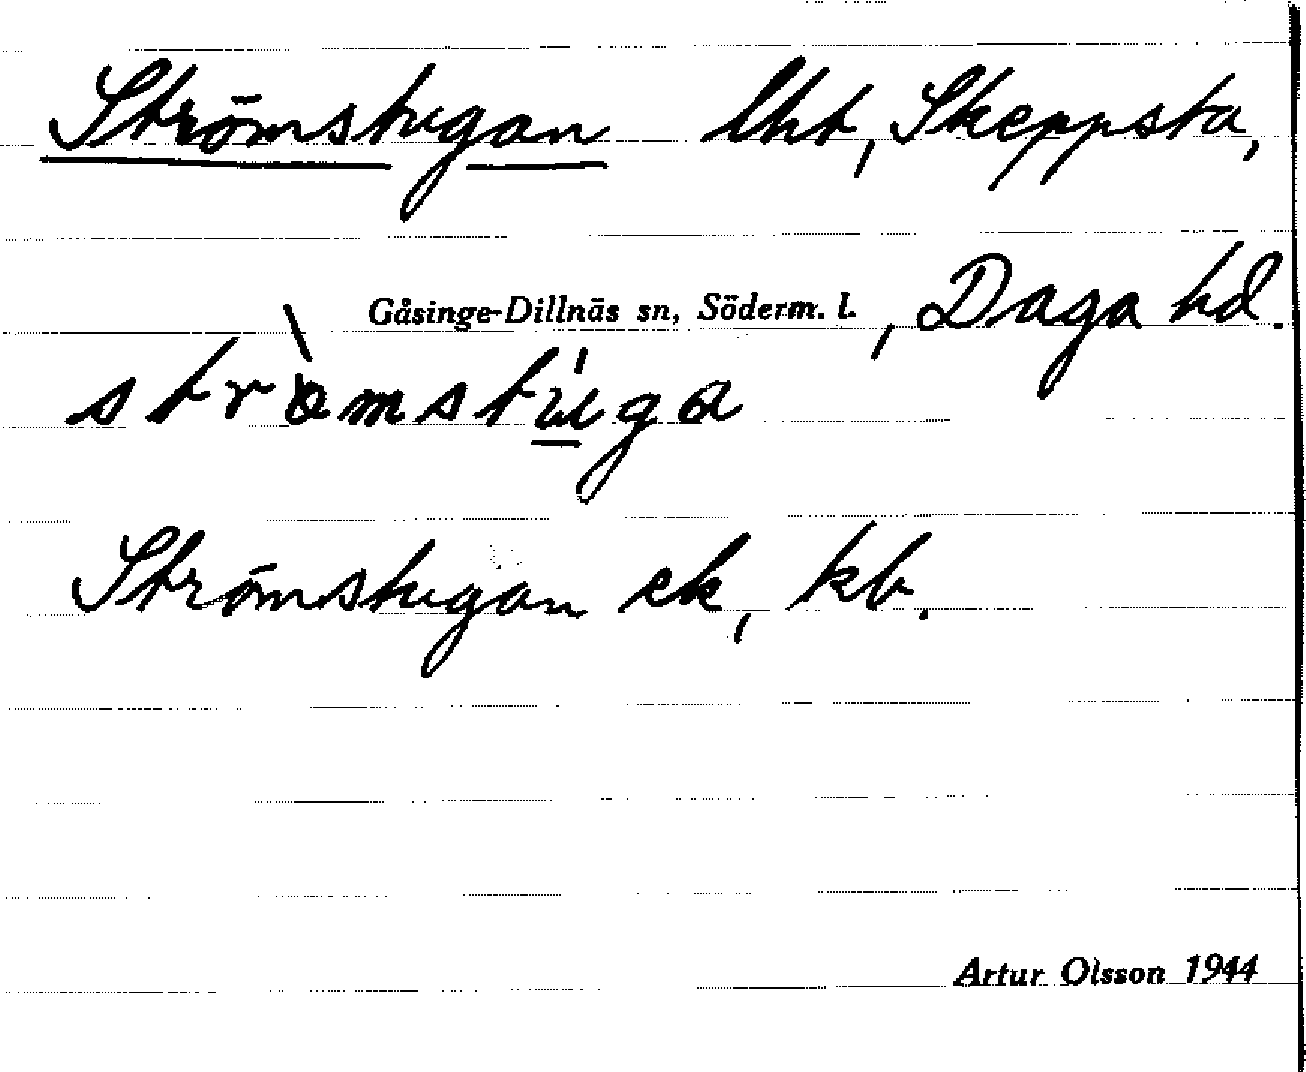 Strömstugan lht, Skeppsta,
Gåsinge-Dillnäs sn, Söderm. l., Daga hd.
Strömstugan ek, kb.
Artur Olsson 1944